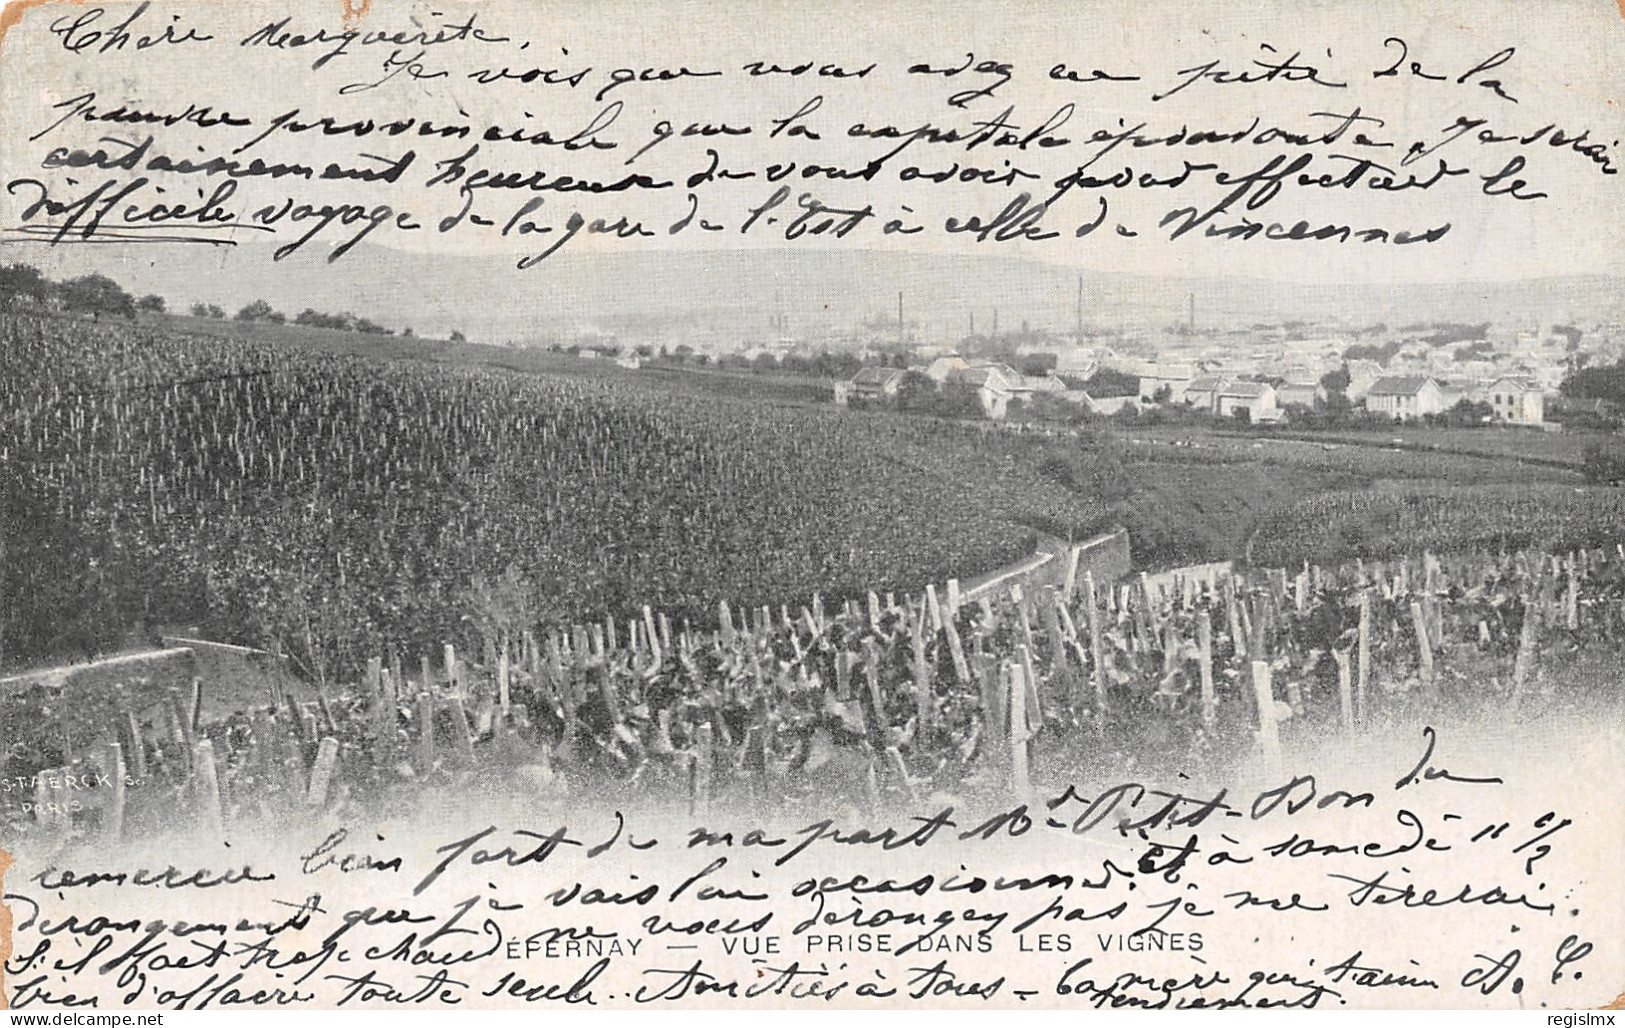 Chère Marguerite,
Je vois que vous avez eu pitié de la
pauvre provinciale que la capitale épouvante, Je serai
certainement heureuse de vous avoir pour effectuer le
difficile voyage de la gare de l'Est à celle de Vincennes
remerciez bien fort de ma part Mr Petit-Bon du
dérangement que je vais lui occasionner. et à samedi 11 h 1/2
S'il fait trop chaud ne vous dérangez pas je me tirerai
bien d'affaire toute seule.. Amitiés à tous - ta mère qui t'aime
tendrement. A. C.
ÉPERNAY — VUE PRISE DANS LES VIGNES
STAERCK Sc.
PARIS
regislmx